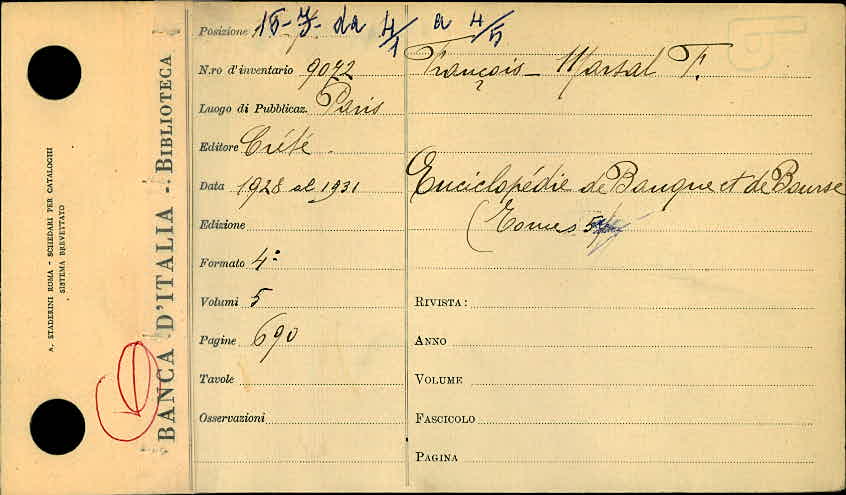 A. STADERINI ROMA - SCHEDARI PER CATALOGHI
SISTEMA BREVETTATO
BANCA D'ITALIA - BIBLIOTECA
Posizione 15-J- da 4/1 a 4/5
N.ro d'inventario 9072
Luogo di Pubblicaz. Paris
Editore Crété.
Data 1928 al 1931
Edizione
Formato 4°
Volumi 5
Pagine 690
Tavole
Osservazioni
François-Marsal F.
Enciclopédie de Banque et de Bourse
(Tomes 5
RIVISTA:
ANNO
VOLUME
FASCICOLO
PAGINA